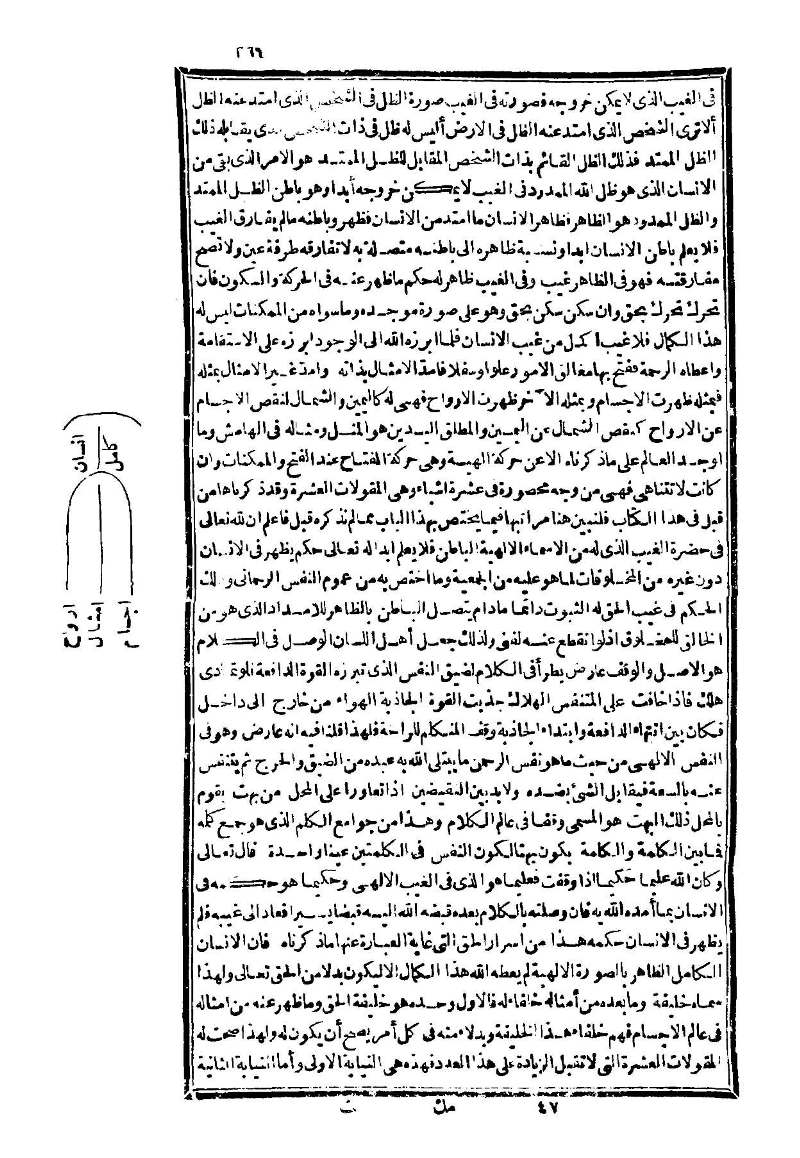 ٢٦٩
فى الغيب الذى لا يمكن خروجه فصورته فى الغيب صورة الظل فى الشخص الذى امتد عنه الظل
ألا ترى الشخص الذى امتد عنه الظل فى الارض أليس له ظل فى ذات الشخص الذى يقابله ذلك
الظل الممتد فذلك الظل القائم بذات الشخص المقابل للظل الممتد هو الامر الذى بقى من
الانسان الذى هو ظل الله الممدود فى الغيب لا يمكن خروجه أبدا وهو باطن الظل الممتد
والظل الممدود هو الظاهر فظاهر الانسان ما امتد من الانسان فظهر وباطنه ما لم يفارق الغيب
فلا يعلم باطن الانسان ابدا ونسبة ظاهره الى باطنه متصلة به لا تفارقه طرفة عين ولا تصح
مفارقته فهو فى الظاهر غيب وفى الغيب ظاهر له حكم ما ظهر عنه فى الحركة والسكون فان
تحرك تحرك بحق وان سكن سكن بحق وهو على صورة موجده وما سواه من الممكنات ليس له
هذا الكمال فلا غيب اكمل من غيب الانسان فلما ابرزه الله الى الوجود ابرزه على الاستقامة
واعطاه الرحمة ففتح بها مغالق الامور علوا وسفلا فأمد الامثال بذاته وامد غير الامثال بمثله
فبمثله ظهرت الاجسام وبمثله الآخر ظهرت الارواح فهى له كاليمين والشمال لنقص الاجسام
عن الارواح كنقص الشمال عن اليمين والمطلق اليدين هو المثل ومثاله فى الهامش وما
اوجد العالم على ما ذكرناه الا عن حركة الهية وهى حركة المفتاح عند الفتح والممكنات وان
كانت لا تتناهى فهى من وجه محصورة فى عشرة اشياء وهى المقولات العشرة وقد ذكرناها من
قبل فى هذا الكتاب فلنبين هنا مراتبها فيما يختص بهذا الباب مما لم نذكره قبل فاعلم ان لله تعالى
فى حضرة الغيب الذى له من الاسماء الالهية الباطن فلا يعلم ابدا له تعالى حكم يظهر فى الانسان
دون غيره من المخلوقات لما هو عليه من الجمعية وما اختص به من عموم النفس الرحمانى وذلك
الحكم فى غيب الحق له الثبوت دائما ما دام يتصل الباطن بالظاهر للامداد الذى هو من
الخالق للمخلوق اذ لو انقطع عنه لفنى ولذلك جعل أهل اللسان الوصل فى الكلام
هو الاصل والوقف عارض يطرأ فى الكلام لضيق النفس الذى تبرزه القوة الدافعة فلو تمادى
هلك فاذا خافت على المتنفس الهلاك جذبت القوة الجاذبة الهواء من خارج الى داخل
فكان بين انتهاء الدافعة وابتداء الجاذبة وقف المتكلم للراحة فلهذا قلنا فيه انه عارض وهو فى
النفس الالهى من حيث ما هو نفس الرحمن ما يبتلى الله به عبده من الضيق والحرج ثم يتنفس
عنه بالسعة فيقابل الشئ بضده ولا بد بين النقيضين اذا تعاورا على المحل من بهت يقوم
بالمحل ذلك البهت هو المسمى وقفا فى عالم الكلام وهذا من جوامع الكلم الذى هو جمع كلمه
فما بين الكلمة والكلمة يكون بهتا لكون النفس فى الكلمتين عينا واحدة قال تعالى
وكان الله عليما حكيما اذا وقفت فعليما هو الذى فى الغيب الالهى وحكيما هو حكمه فى
الانسان بما أمده الله به فان وصلته بالكلام بعده قبضه الله اليه قبضا يسيرا فعاد الى غيبه فلم
يظهر فى الانسان حكمه هذا من اسرار الحق التى غاية العبارة عنها ما ذكرناه فان الانسان
الكامل الظاهر بالصورة الالهية لم يعطه الله هذا الكمال الا ليكون بدلا من الحق تعالى ولهذا
سماه خليفة وما بعده من أمثاله خلفاء له فالاول وحده هو خليفة الحق وما ظهر عنه من امثاله
فى عالم الاجسام فهم خلفاء هذا الخليفة وبدلاء منه فى كل أمر يصح أن يكون له ولهذا صحت له
المقولات العشرة التى لا تقبل الزيادة على هذا العدد فهذه هى النيابة الاولى وأما النيابة الثانية
انسان
كامل
ارواح
امثال
اجسام
٤٧ مك ت